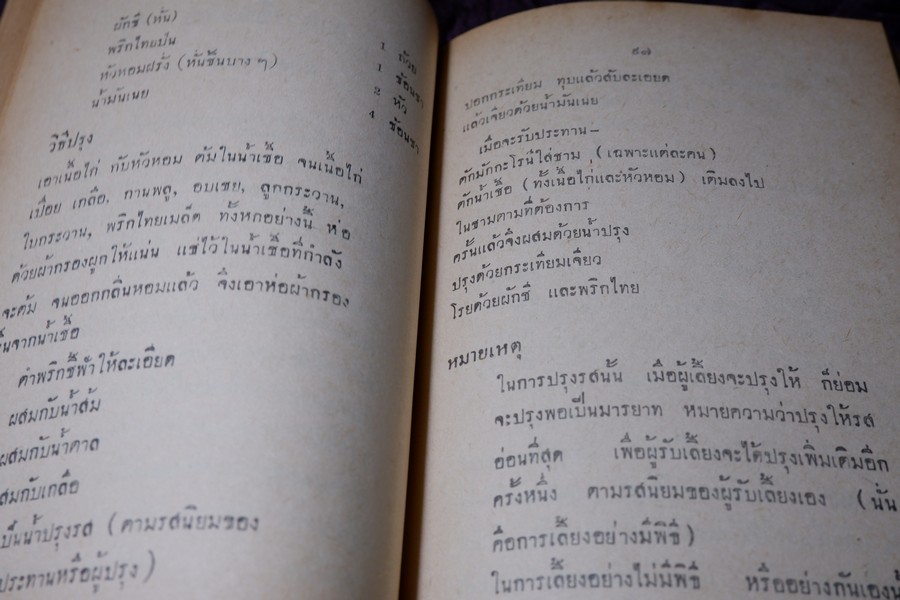 ผักชี (หั่น) 1 ถ้วย
พริกไทยป่น 1 ช้อนชา
หัวหอมฝรั่ง (หั่นชิ้นบาง ๆ) 2 หัว
น้ำมันเนย 4 ช้อนชา
วิธีปรุง
เอาเนื้อไก่ กับหัวหอม ต้มในน้ำเชื้อ จนเนื้อไก่
เปื่อย เกลือ, กานพลู, อบเชย, ลูกกระวาน,
ใบกระวาน, พริกไทยเม็ด ทั้งหกอย่างนี้ ห่อ
ด้วยผ้ากรองผูกให้แน่น แช่ไว้ในน้ำเชื้อที่กำลัง
จะต้ม จนออกกลิ่นหอมแล้ว จึงเอาห่อผ้ากรอง
จากน้ำเชื้อ
ตำพริกชี้ฟ้าให้ละเอียด
ผสมกับน้ำส้ม
ผสมกับน้ำตาล
สมกับเกลือ
เป็นน้ำปรุงรส (ตามรสนิยมของ
ประทานหรือผู้ปรุง)
๙๗
ปอกกระเทียม ทุบแล้วสับละเอียด
แล้วเจียวด้วยน้ำมันเนย
เมื่อจะรับประทาน–
ตักมักกะโรนีใส่ชาม (เฉพาะแต่ละคน)
ตักน้ำเชื้อ (ทั้งเนื้อไก่และหัวหอม) เติมลงไป
ในชามตามที่ต้องการ
ครั้นแล้วจึงผสมด้วยน้ำปรุง
ปรุงด้วยกระเทียมเจียว
โรยด้วยผักชี และพริกไทย
หมายเหตุ
ในการปรุงรสนั้น เมื่อผู้เลี้ยงจะปรุงให้ ก็ย่อม
จะปรุงพอเป็นมารยาท หมายความว่าปรุงให้รส
อ่อนที่สุด เพื่อผู้รับเลี้ยงจะได้ปรุงเพิ่มเติมอีก
ครั้งหนึ่ง ตามรสนิยมของผู้รับเลี้ยงเอง (นั่น
คือการเลี้ยงอย่างมีพิธี)
ในการเลี้ยงอย่างไม่มีพิธี หรืออย่างกันเอง